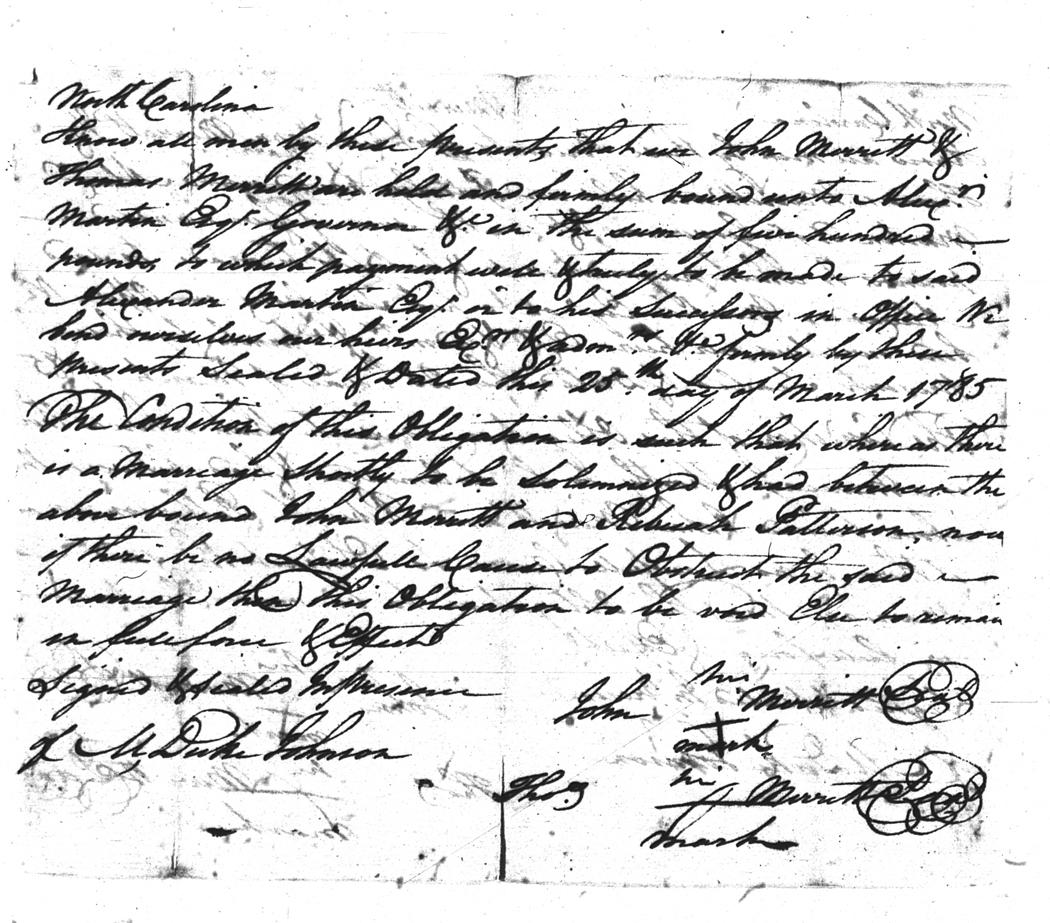 North Carolina
Know all men by these presents, that we John Merritt &
Thomas Merritt are held and firmly bound unto Alexr.
Martin Esqr. Governor &c. in the sum of five hundred
pounds, to which payment well & truly to be made to said
Alexander Martin Esqr. or to his Successors in Office We
bind ourselves our heirs Exrs & admrs &c firmly by these
Presents Sealed & Dated this 25th. day of March 1785
The Condition of this Obligation is such that whereas there
is a Marriage Shortly to be Solemnized & had between the
above bound John Merritt and Rebecah Patterson, now
if there be no Lawfull Cause to Obstruct the said
Marriage then this Obligation to be void Else to remain
in full force & Effect
Signed & Sealed In presence
of M, Duke Johnson
his
John Merritt Seal
mark
his
Thos. Merritt Seal
mark